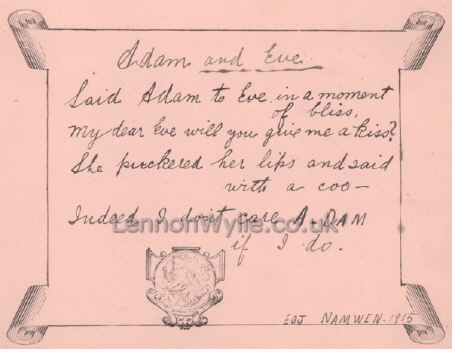 Adam and Eve.
Said Adam to Eve in a moment
of bliss,
My dear Eve will you give me a kiss?
She puckered her lips and said
with a coo—
Indeed I don't care A-DAM
LennonWylie.co.uk
if I do.
EOJ NAMWEN. 1915